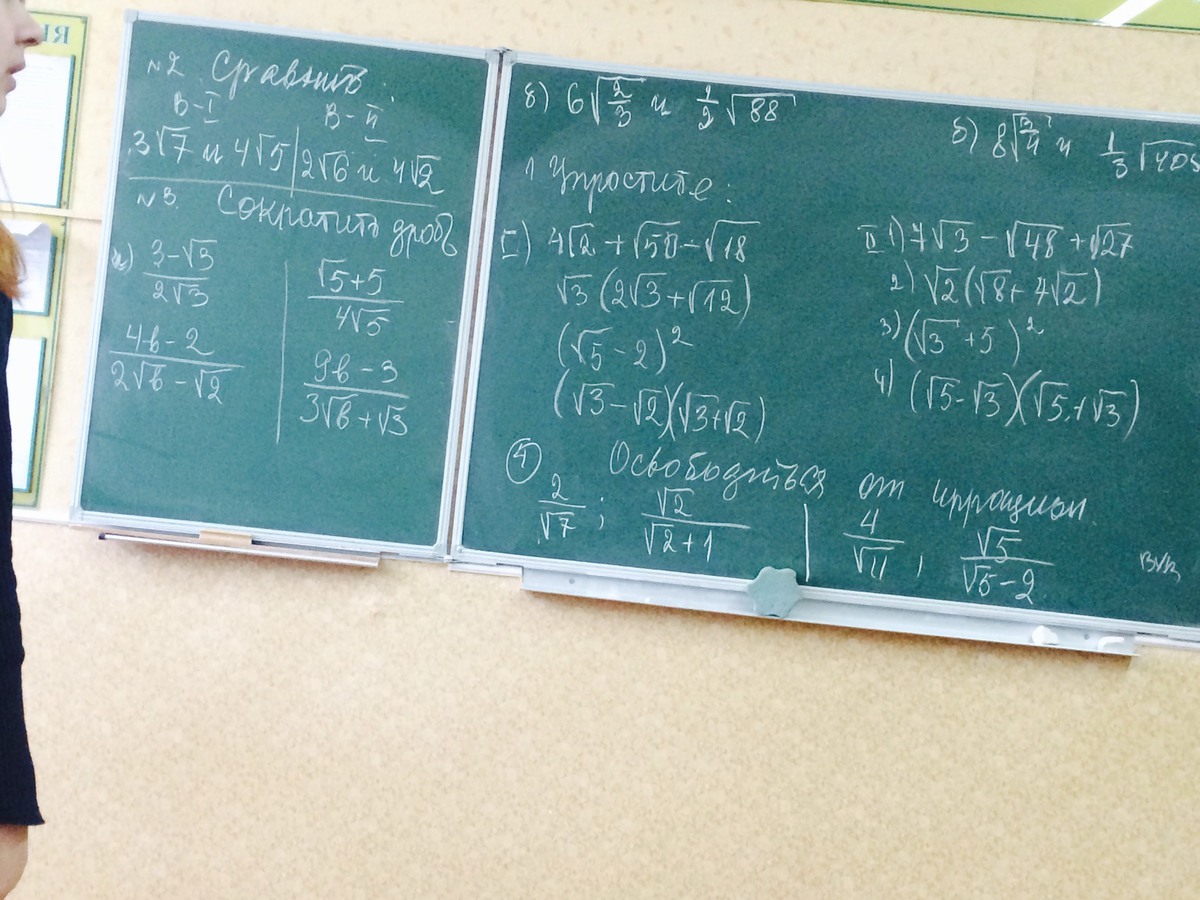 №2 Сравнить:
В-I В-II
3√7 и 4√5 | 2√6 и 4√2
№3. Сократить дробь
а) (3-√3)/(2√3) | (√5+5)/(4√5)
(4в-2)/(2√в-√2) | (9в-3)/(3√в+√3)
б) 6√(2/3) и 1/2 √88
б) 8√(3/4) и 1/3 √405
1 Упростите:
I) 4√2 + √50 - √18
√3(2√3+√12)
(√5-2)²
(√3-√2)(√3+√2)
II 1) 7√3 - √48 + √27
2) √2(√8+4√2)
3) (√3+5)²
4) (√5-√3)(√5+√3)
④ Освободиться от иррацион.
2/√7 ; √2/(√2+1) | 4/√11 , √5/(√5-2)